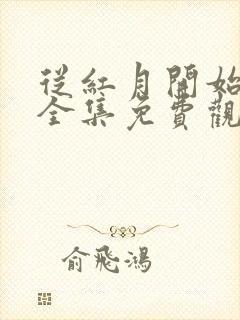 從紅月開始
全集免費觀
俞飛鴻